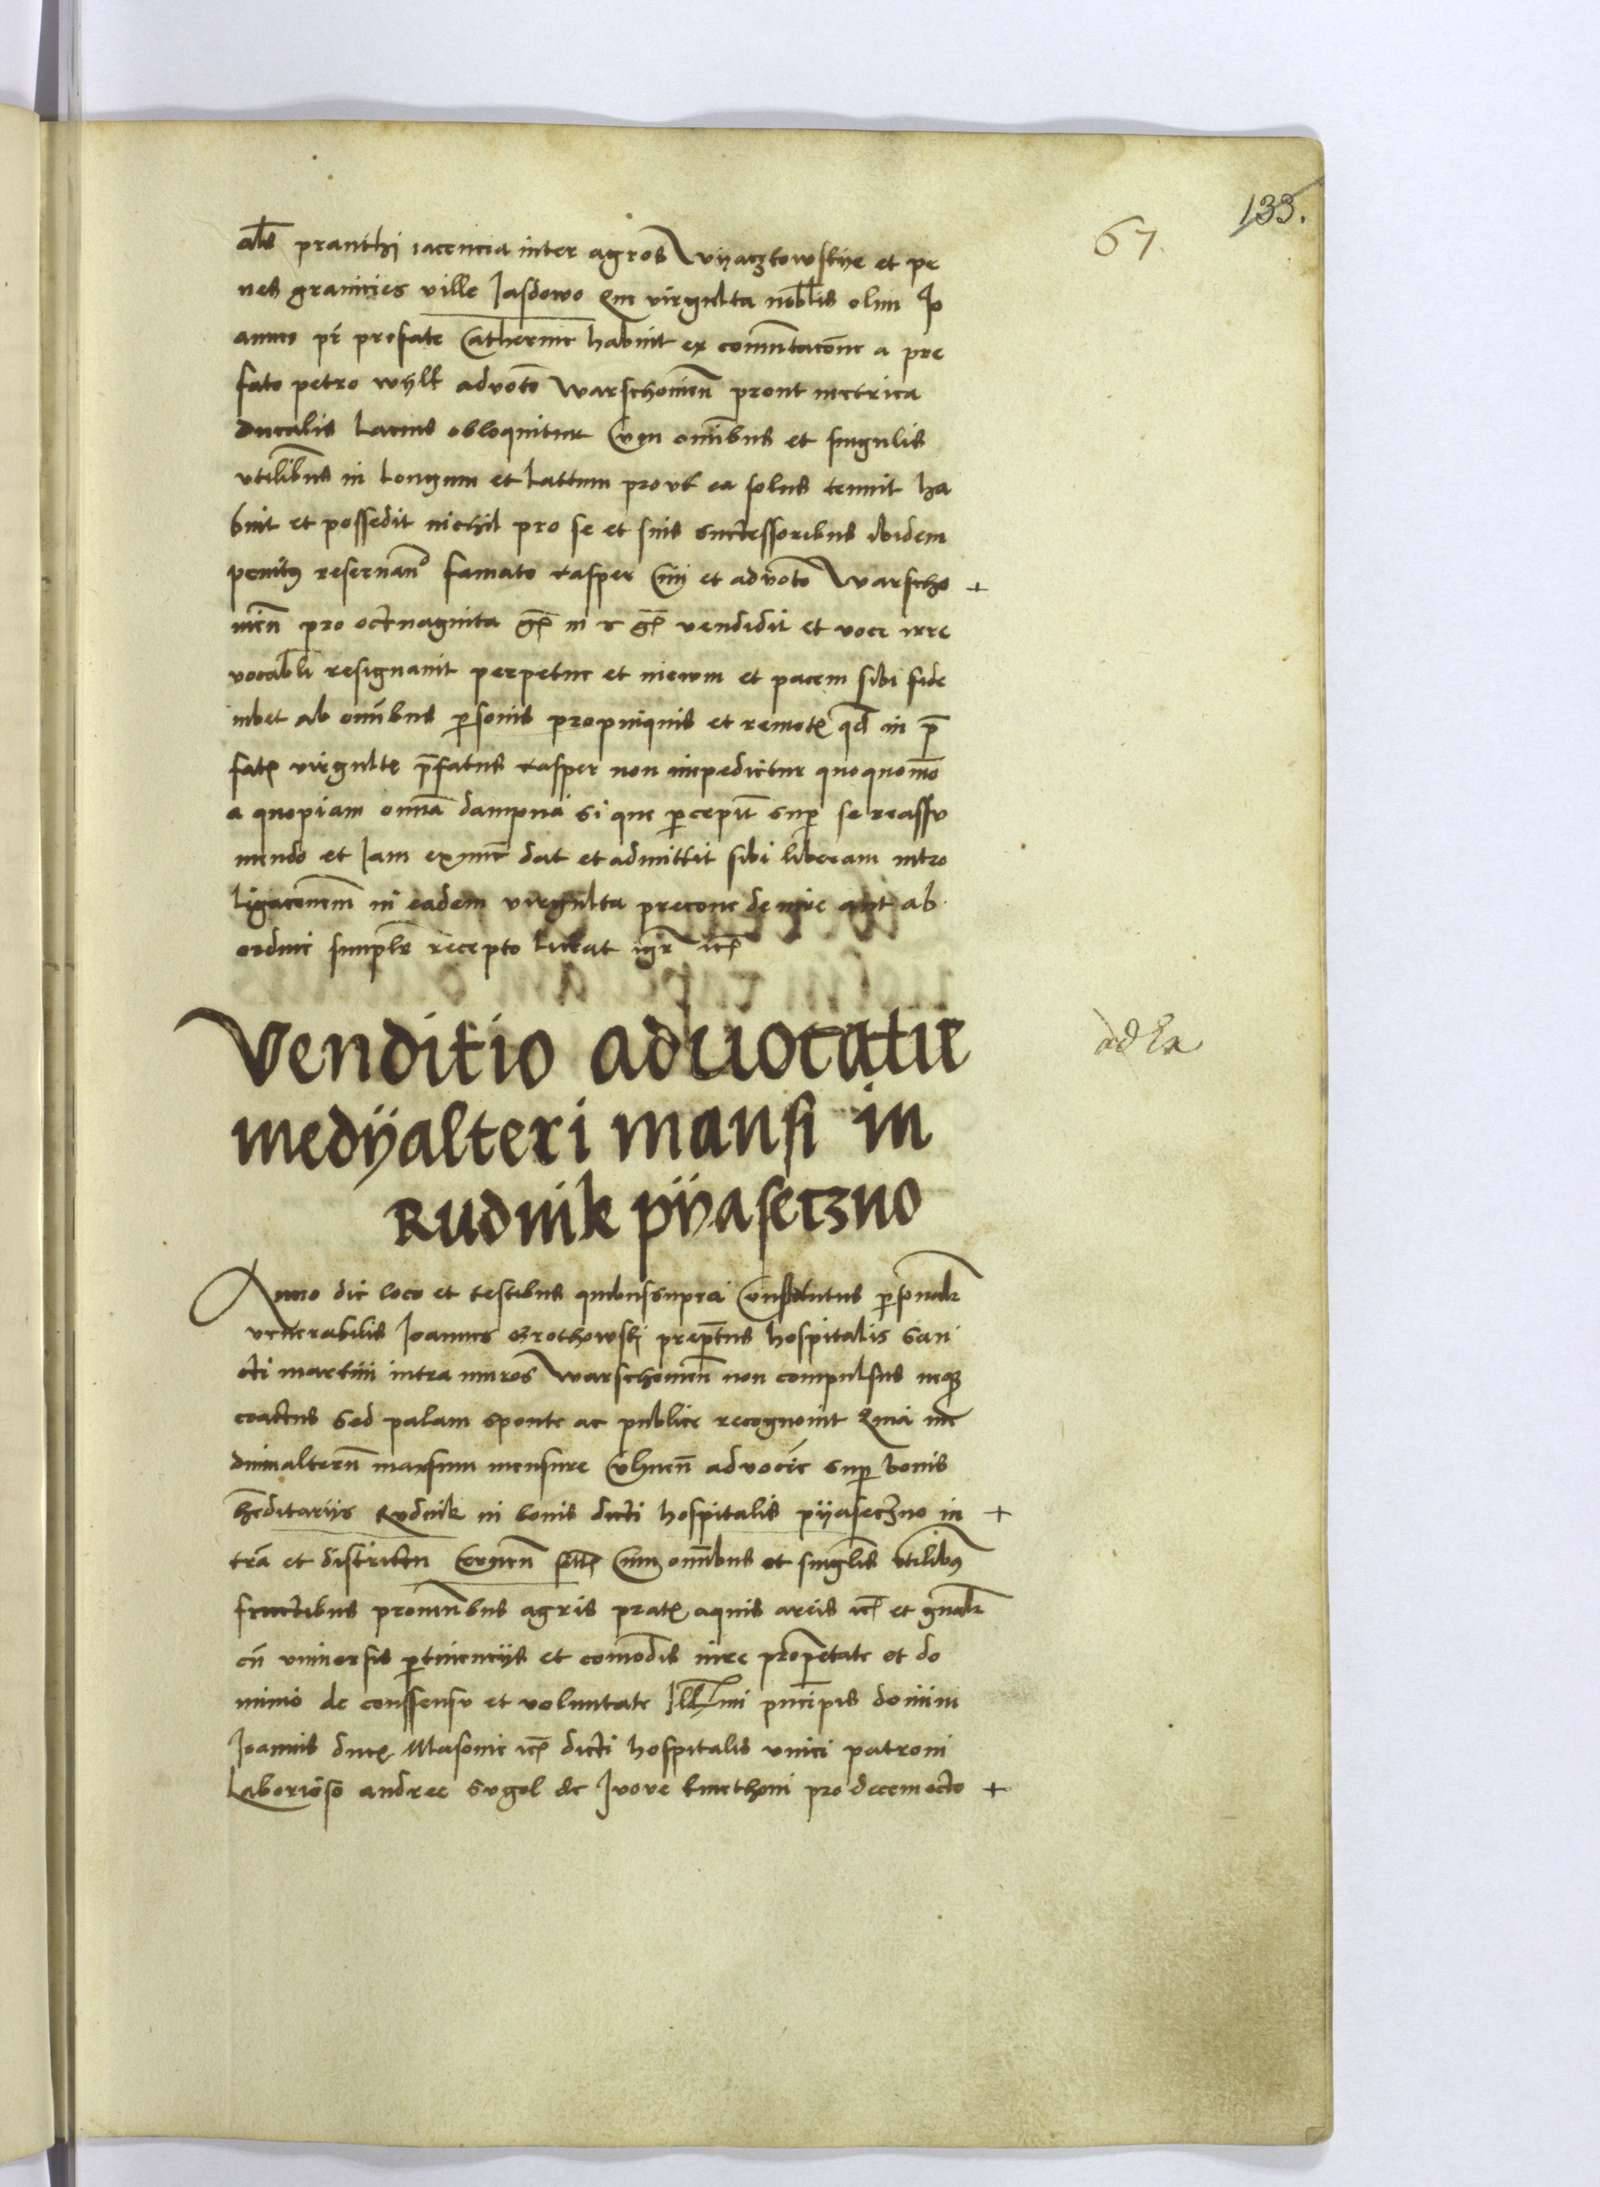 133.
67.
als pranthi iacencia inter agros Vyaczkowskye et pe
nes granicies ville Jasdowo Que virgulta nobilis olim Jo
annes pr prefate Catherine habuit ex comutacone a pre
fato petro wylk advoto Warschouien prout metrica
ducalis Lacius obloquitur Cum omibus et singulis
vtilibus in Longum et Lattum prout ea solus tenuit ha
buit et possedit nichil pro se et suis successoribus ibidem
penitus reseruando famato Casper Civi et advoto Warscho +
uien pro octuaginta in r vendidit et voce irre
vocabli resignauit perpetue et in ewm et pacem sibi fide
iubet ab omibus psonis propinquis et remotis qd in p
fatis virgultis pfatus Casper non impedietur quoquomo
a quopiam omia dampna si que pcepit sup se reassu
mendo et Jam exnunc dat et admittit sibi liberam intro
ligaconem in eadem virgulta precone de iure aut ab
ordine simplr recepto
Venditio aduocatie
medyalteri mansi in
Rudnik pyasetzno
Anno die loco et testibus quibussupra Constitutus psonalr
venerabilis Joannes Grothowski prepptus hospitalis San
cti martini intra muros Warschouien non compulsus neque
coactus Sed palam sponte ac publice recognouit Quia me
diumalterum mansum mensure Culmen advocie sup bonis
heditariis Rudnik in bonis dicti hospitalis pyasetzno in +
tra et districtu Cernen Cum omibus et singlis vtilibus
fructibus prouentibus agris pratis aquis areis et gnalr
cu vniuersis ptinencys et comodis iure propietate et do
minio de conssensu et voluntate Jllmi pncipis domini
Joannis ducis Masouie dicti hospitalis vnici patroni
Laborioso andree Sugol de Jvove kmethoni pro decemocto +